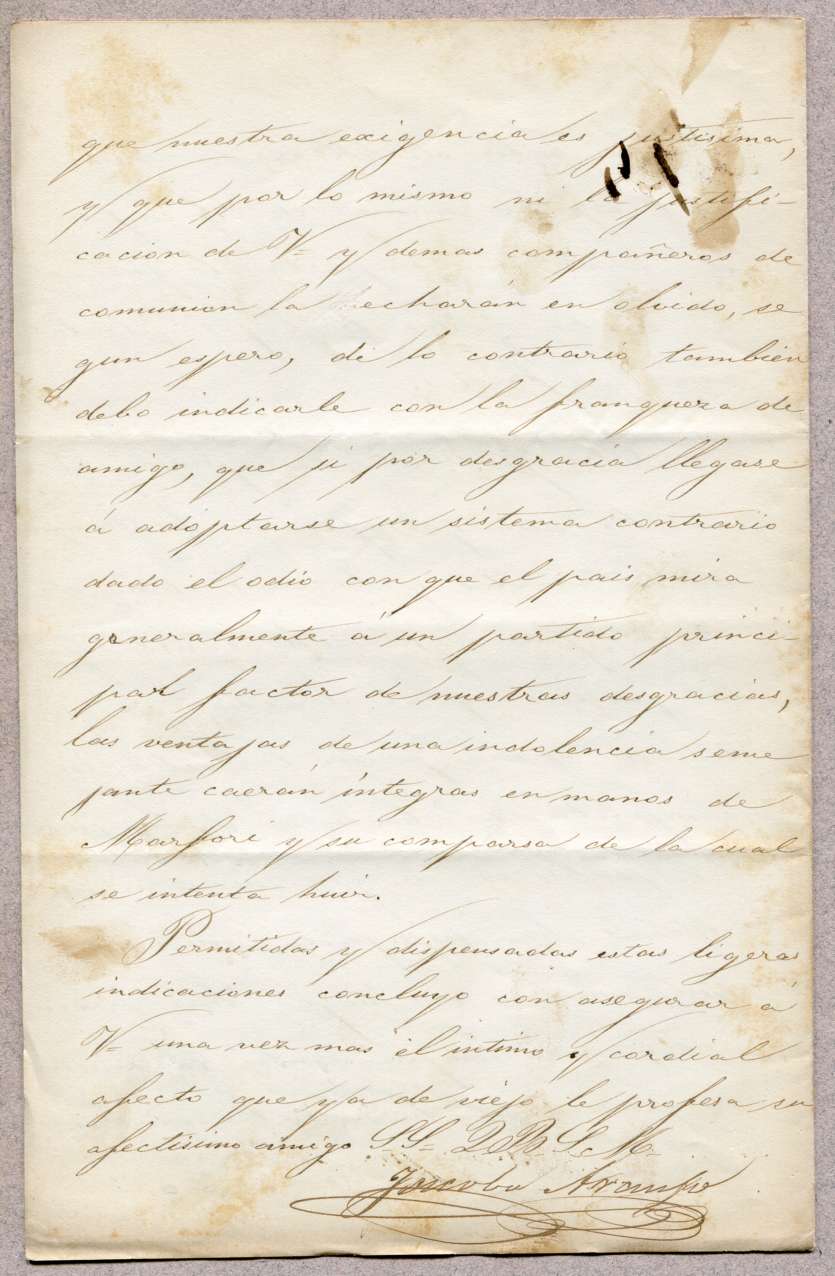 que nuestra exigencia es justisima,
y que por lo mismo ni la justifi-
cacion de V= y demas compañeros de
comunion la hecharán en olvido, se
gun espero, di lo contrario tambien
debo indicarle con la franqueza de
amigo, que si por desgracia llegase
á adoptarse un sistema contrario
dado el odio con que el pais mira
generalmente á un partido princi-
pal factor de nuestras desgracias,
las ventajas de una indolencia seme
jante caerán integras en manos de
Marfori y su comparsa de la cual
se intenta huir.
Permitidas y dispensadas estas ligeras
indicaciones concluyo con asegurar á
V= una vez mas el intimo y cordial
afecto que ya de viejo le profesa su
afectisimo amigo S.S. Q. B. S. M.
Jacobo Araujo